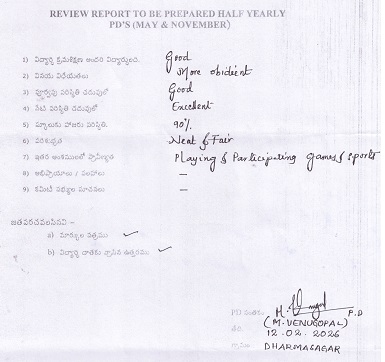 REVIEW REPORT TO BE PREPARED HALF YEARLY
PD'S (MAY & NOVEMBER)
1) విద్యార్థి క్రమశిక్షణ అందరి విద్యార్థులది. Good
2) వినయ విధేయతలు More obidient
3) పూర్వపు పరిస్థితి చదువులో Good
4) నేటి పరిస్థితి చదువులో Excellent
5) స్కూలుకు హాజరు పరిస్థితి. 90%
6) పరిశుభ్రత Neat & Fair
7) ఇతర అంశములలో ప్రావీణ్యత Playing & Participating games & sports
8) అభిప్రాయాలు / సలహాలు –
9) కమిటీ సభ్యుల సూచనలు –
జతపరచవలసినవి –
a) మార్కుల పత్రము ✓
b) విద్యార్థి దాతకు వ్రాసిన ఉత్తరము ✓
PD సంతకం P.D
(M. VENUGOPAL)
తేది. 12.02.2026
స్థలము DHARMASAGAR